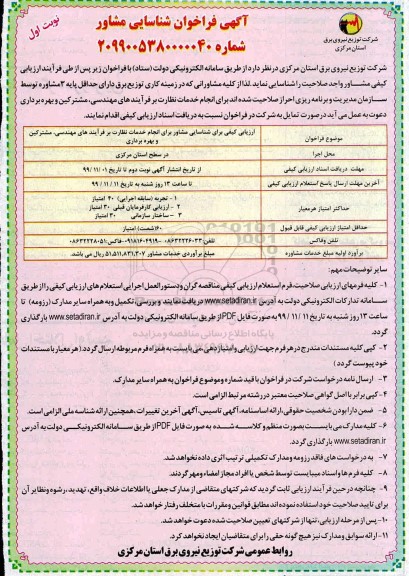 نوبت اول
آگهی فراخوان شناسایی مشاور
شماره ۲۰۹۹۰۰۵۳۸۰۰۰۰۰۴۰
شرکت توزیع نیروی برق
استان مرکزی
شرکت توزیع نیروی برق استان مرکزی در نظر دارد از طریق سامانه الکترونیکی دولت (ستاد) با فراخوان زیر پس از طی فرآیند ارزیابی
کیفی مشاور واجد صلاحیت را شناسایی نماید. لذا از کلیه مشاورانی که در زمینه کاری توزیع برق دارای حداقل پایه ۳ مشاوره توسط
سازمان مدیریت و برنامه ریزی احراز صلاحیت شده اند برای انجام خدمات نظارت بر فرآیند های مهندسی، مشترکین و بهره برداری
دعوت به عمل می آید در صورت تمایل به شرکت در فراخوان نسبت به دریافت اسناد ارزیابی کیفی اقدام نمایند.
موضوع فراخوان
ارزیابی کیفی برای شناسایی مشاور برای انجام خدمات نظارت بر فرآیند های مهندسی، مشترکین و بهره برداری
محل اجرا
در سطح استان مرکزی
مهلت دریافت اسناد ارزیابی کیفی
از تاریخ انتشار آگهی نوبت دوم تا تاریخ ۰۱/ ۱۱/ ۹۹
آخرین مهلت ارسال پاسخ استعلام ارزیابی کیفی
تا ساعت ۱۳ روز شنبه به تاریخ ۱۱/ ۱۱/ ۹۹
حداکثر امتیاز هر معیار
۱- تجربه (سابقه اجرایی) ۴۰ امتیاز
۲- ارزیابی کارفرمایان قبلی ۳۰ امتیاز
۳- ساختار سازمانی ۳۰ امتیاز
حداقل امتیاز ارزیابی کیفی قابل قبول
۶۰(شصت) امتیاز
تلفن وفاکس
برآورد اولیه مبلغ خدمات مشاوره
مبلغ برآوردی خدمات مشاور ۵۱,۵۱۱,۸۳۱,۳۰۷ ریال می باشد
سایر توضیحات مهم:
۱- کلیه فرمهای ارزیابی صلاحیت، فرم استعلام ارزیابی کیفی مناقصه گران و دستورالعمل اجرایی استعلام های ارزیابی کیفی را از طریق
سامانه تدارکات الکترونیکی دولت به آدرس www.setadiran.ir دریافت نمایند و بررسی، تکمیل و به همراه سایر مدارک (رزومه) تا
ساعت ۱۳ روز شنبه به تاریخ ۱۱/ ۱۱/ ۹۹ به صورت فایل PDF از طریق سامانه الکترونیکی دولت به آدرس www.setadiran.ir بارگذاری
گردد.
۲- کپی کلیه مستندات مندرج در هر فرم جهت ارزیابی و امتیاز دهی می بایست به همراه فرم مربوطه ارسال گردد. (هر معیار با مستندات
خود پیوست گردد)
۳- ارسال نامه درخواست شرکت در فراخوان با قید شماره وموضوع فراخوان به همراه سایر مدارک.
۴- کپی برابر با اصل گواهی صلاحیت معتبر در رشته مرتبط الزامی است.
۵- ضمن دارا بودن شخصیت حقوقی، ارائه اساسنامه، آگهی تاسیس، آگهی آخرین تغییرات، همچنین ارائه شناسه ملی الزامی است.
۶- کلیه مدارک می بایست بصورت منظم و کلاسه شده به صورت فایل PDF از طریق سامانه الکترونیکی دولت به آدرس
www.setadiran.ir بارگذاری گردد.
۷- به درخواست های فاقد رزومه و مدارک تکمیلی ترتیب اثری داده نخواهد شد.
۸- کلیه فرم ها و اسناد میبایست توسط شخص یا افراد مجاز امضاء و مهر گردند.
۹- چنانچه در حین فرآیند ارزیابی ثابت گردید که شرکتهای متقاضی از مدارک جعلی یا اطلاعات خلاف واقع، تهدید، رشوه ونظایر آن
برای تایید صلاحیت خود استفاده نموده اند مطابق قوانین و مقررات با متخلف رفتار خواهد شد.
۱۰- پس از مرحله ارزیابی، تنها از شرکتهای تعیین صلاحیت شده دعوت خواهد شد.
۱۱- ارائه سوابق ومدارک نیز هیچ گونه حقی را برای متقاضیان ایجاد نخواهد کرد.
روابط عمومی شرکت توزیع نیروی برق استان مرکزی